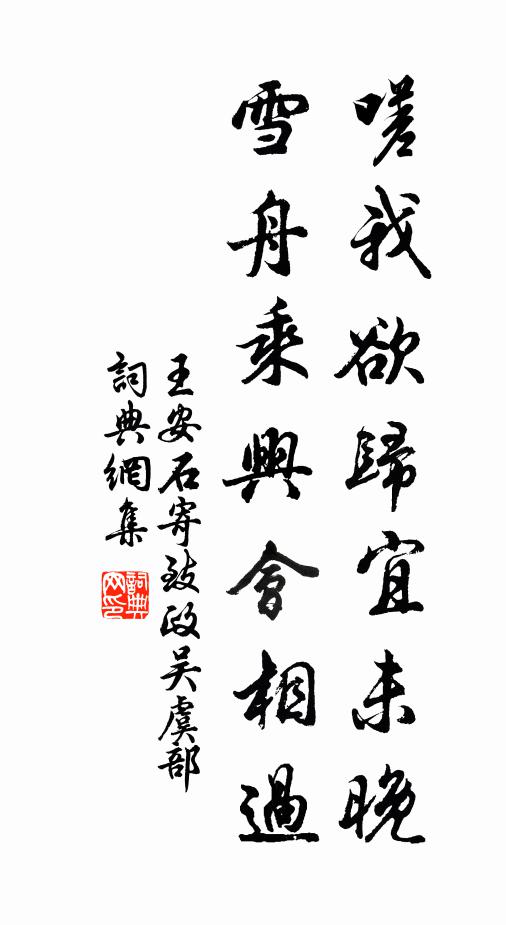 嗟我欲歸宜未晚
雪舟乘興會相過
王安石寄致政吴虞部
詞典網集
詞典
网印